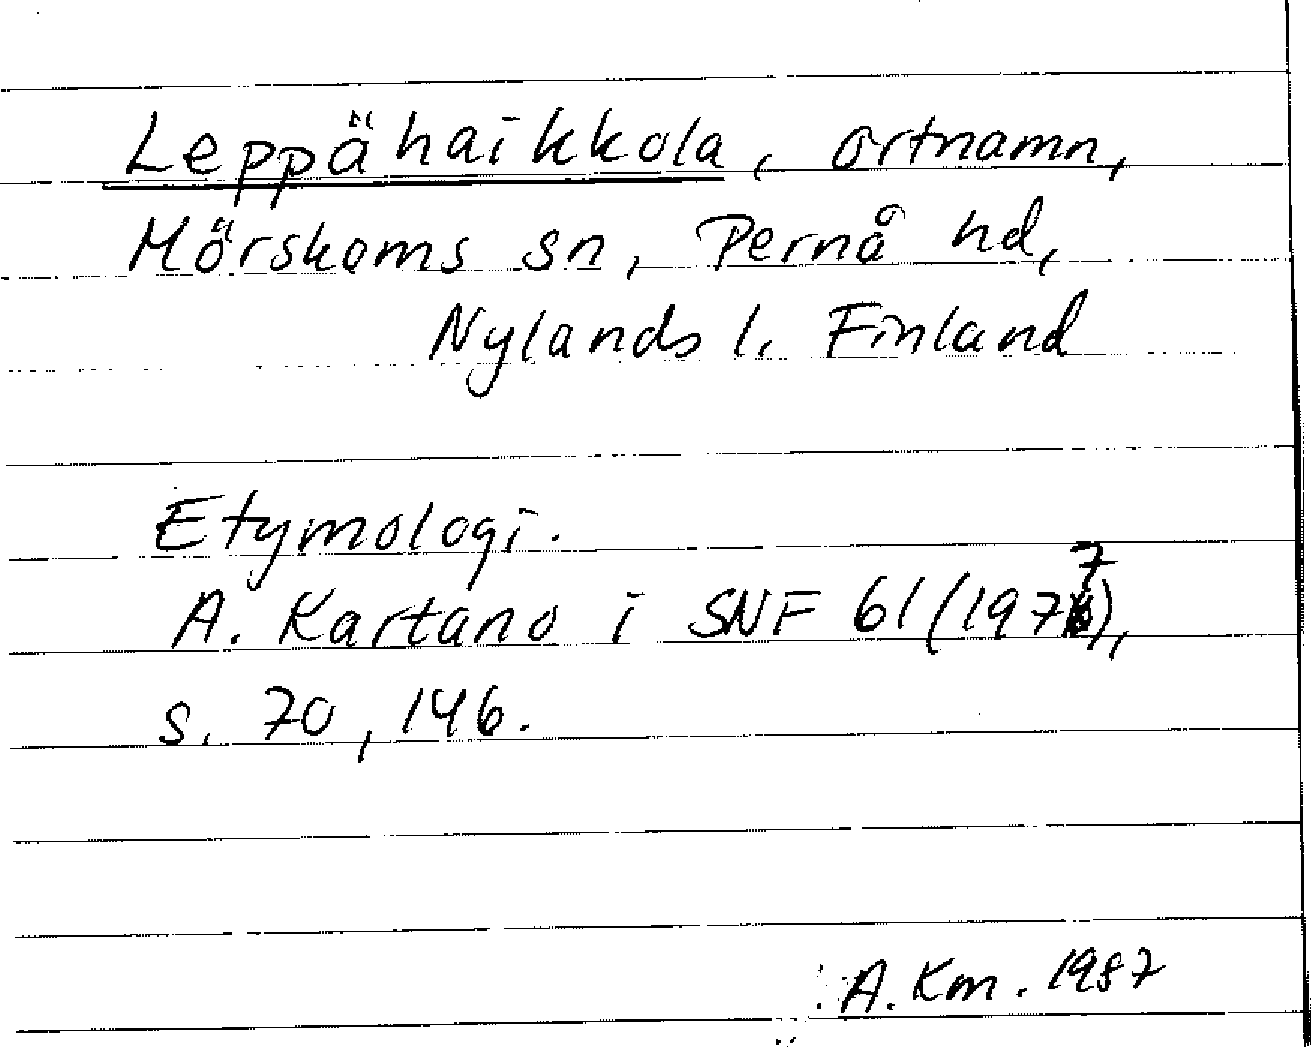 Leppähaikkola, ortnamn,
Mörskoms sn, Pernå hd,
Nylands l. Finland
Etymologi.
A. Kartano i SNF 61 (1977),
s. 70, 146.
A. Km. 1987